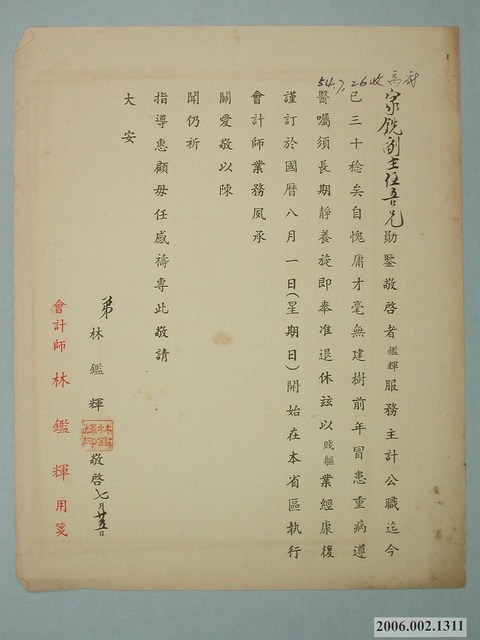 54.7.26收 高雄
家銑副主任吾兄勛鑒敬啓者鑑輝服務主計公職迄今
已三十稔矣自愧庸才毫無建樹前年冒患重病遵
醫囑須長期靜養旋即奉准退休茲以賤軀業經康復
謹訂於國曆八月一日(星期日)開始在本省區執行
會計師業務夙承
關愛敬以陳
聞仍祈
指導惠顧毋任感禱專此敬請
大安
弟林鑑輝
林鑑輝印
敬啓七月廿五日
會計師林鑑輝用箋
2006.002.1311